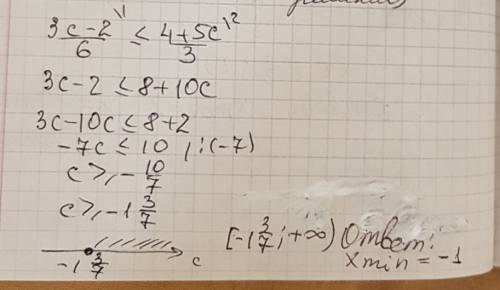 (3c-2)/6 \1 ≤ (4+5c)/3 \2
3c-2 ≤ 8+10c
3c-10c ≤ 8+2
-7c ≤ 10 | :(-7)
c ≥ -10/7
c ≥ -1 3/7
-1 3/7 c
[-1 3/7; +∞) Ответ:
xmin = -1